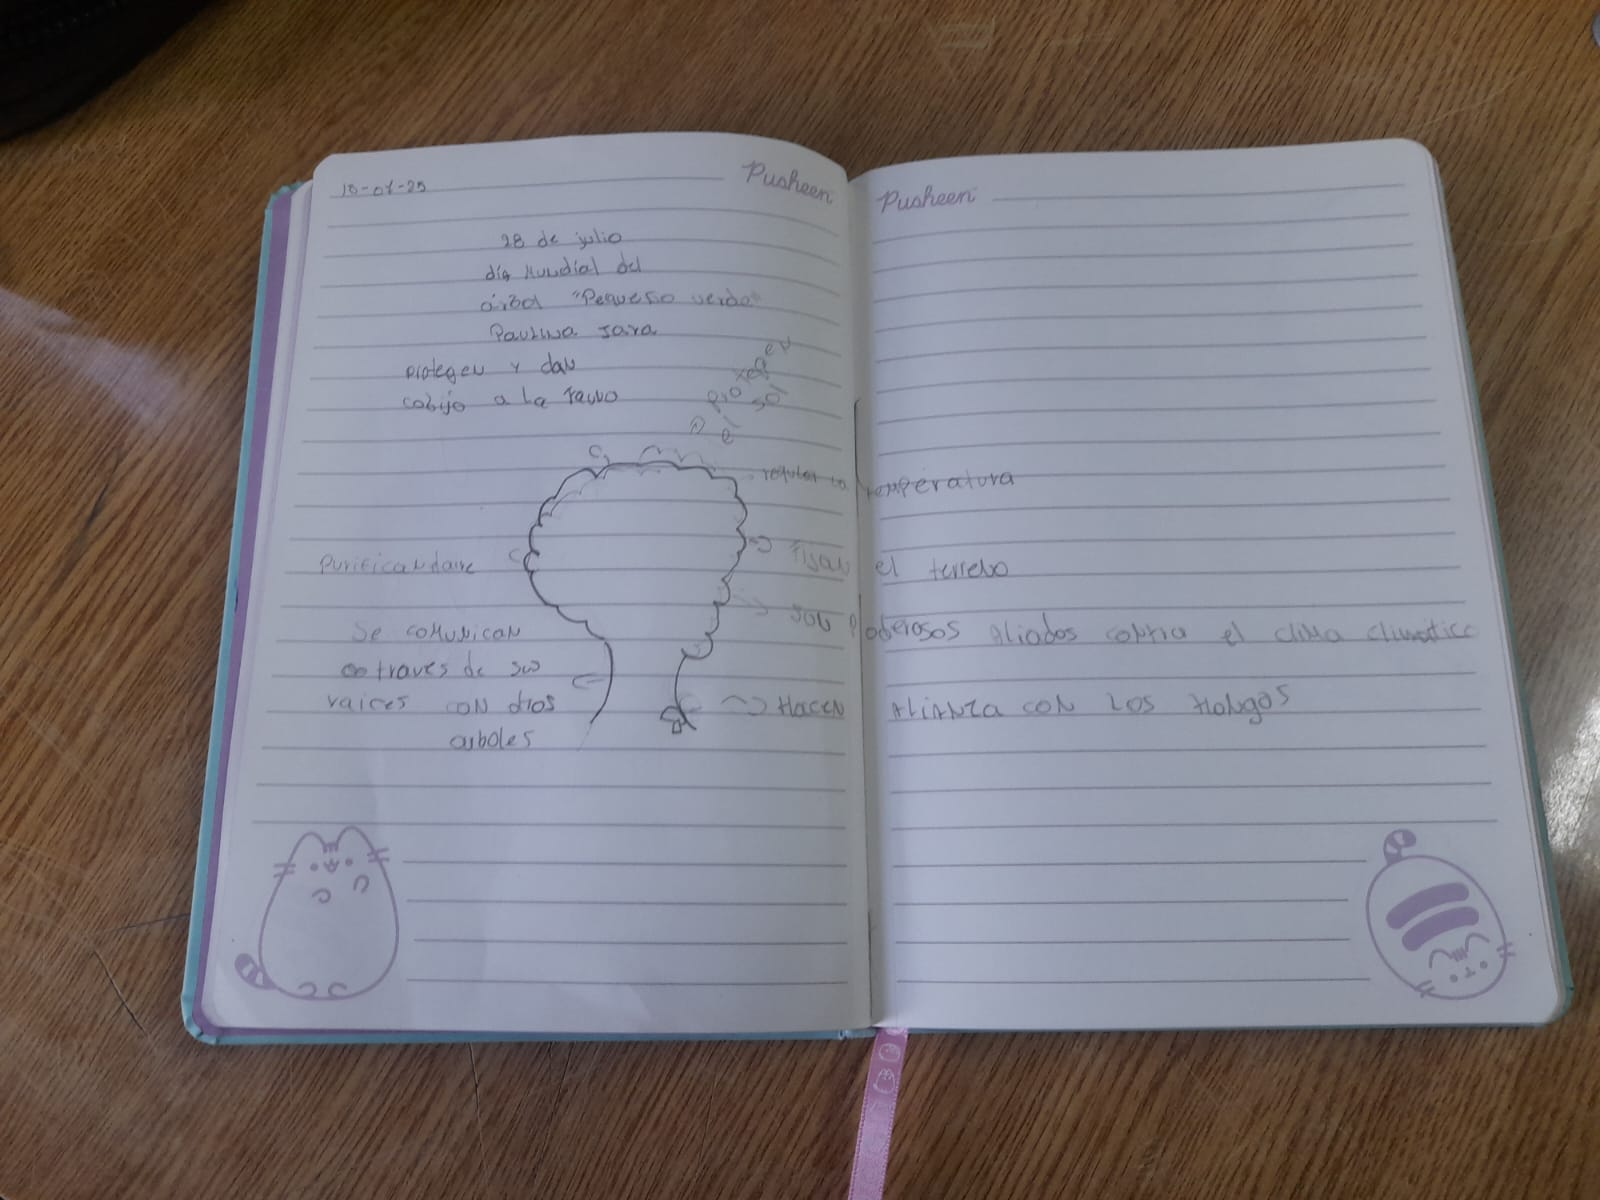 Pusheen
28 de julio
día Mundial del
árbol "Pequeño verde"
Paulina Jara
protegen y dan
cobijo a la fauno
proteger
el sol
regular la temperatura
Purifican daire
fijan el terreno
Se comunican
a traves de sus
raices con otros
arboles
son poderosos aliados contra el clima climático
Hacen Alianza con Los Hongos
Pusheen